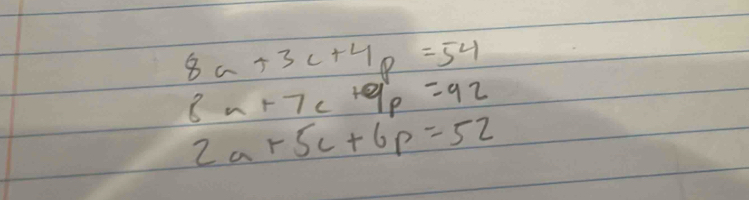 8a + 3c + 4p = 54
8a + 7c + 9p = 92
2a + 5c + 6p = 52